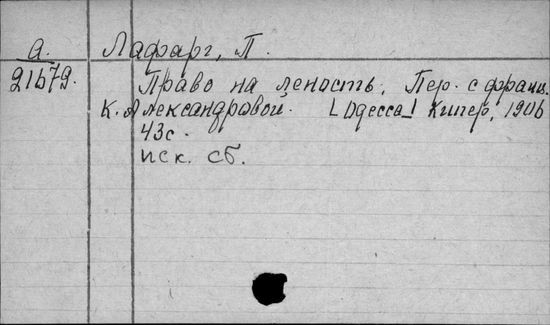 А. Лафарг, П.
21679. Право на леность. Пер. с франц.
К. Александровой. [Одесса] Кипер, 1906
43с.
иск. сб.